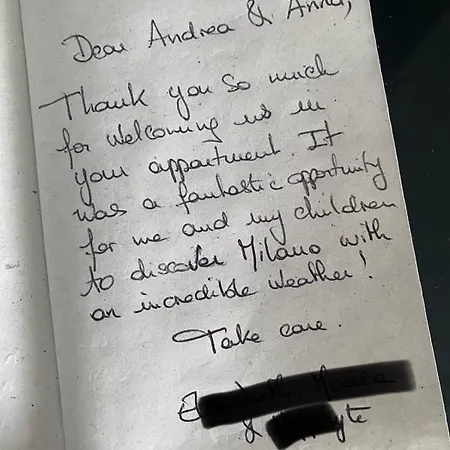 Dear Andrea & Anna,
Thank you so much
for welcoming us in
your appartment. It
was a fantastic opportunity
for me and my children
to discover Milano with
an incredible weather!
Take care.
&